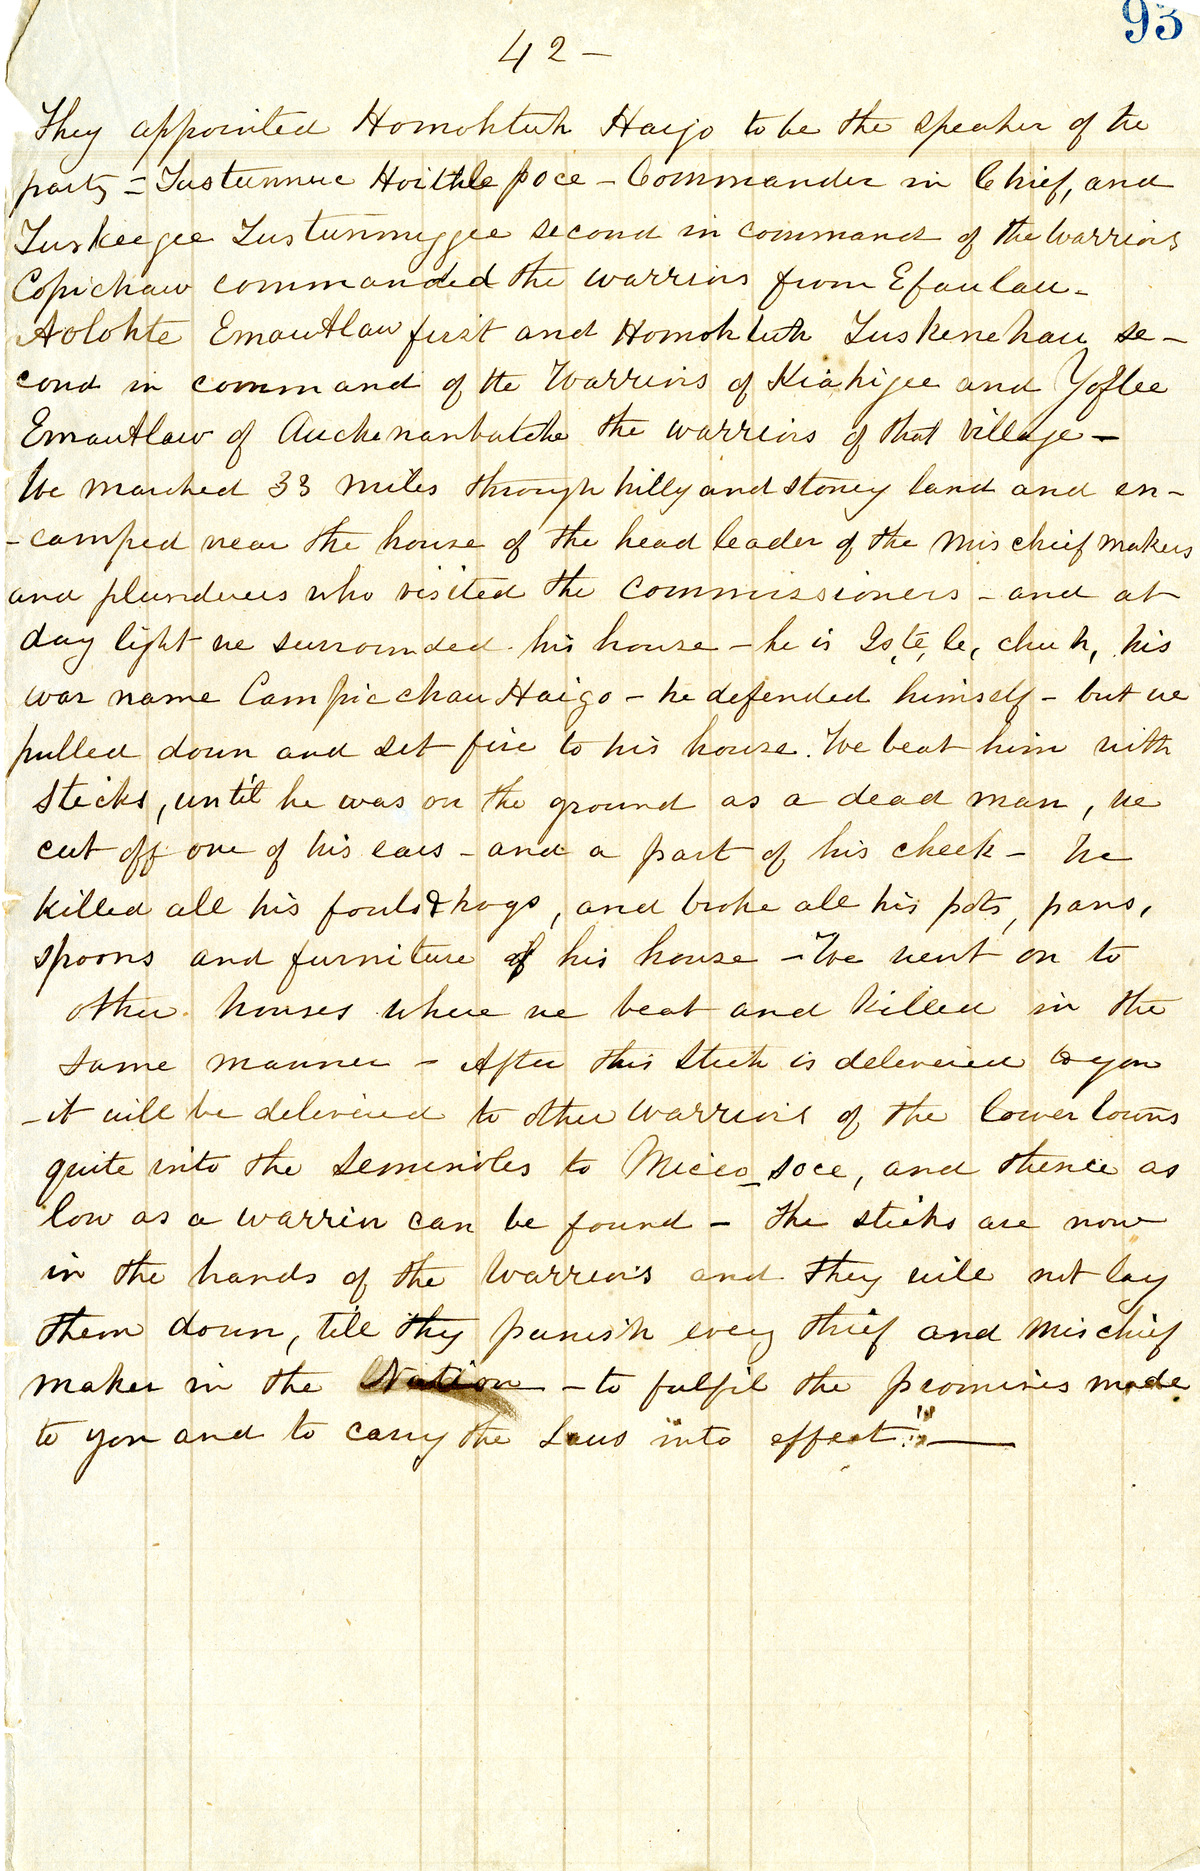 93
42 –
They appointed Homohtuh Haijo to be the speaker of the
party = Tustunnue Hoithle poce – Commander in Chief, and
Tuskeegee Tustunniggee second in command of the Warriors
Copichaw commanded the warriors from Efaulau –
Aolohte Emautlaw first and Homohtuh Tuskenehau se–
cond in command of the Warriors of Kiahijee and Yoflee
Emautlaw of Auchenanbatche the warriors of that village –
We marched 33 miles through hilly and stoney land and en–
–camped near the house of the head leader of the Mischief makers
and plunderers who visited the Commissioners – and at
day light we surrounded his house – he is Is, te, le, chuh, his
war name Campicchau Haigo – he defended himself – but we
pulled down and set fire to his house. We beat him with
sticks, until he was on the ground as a dead man, we
cut off one of his ears – and a part of his cheek – We
killed all his fouls & hogs, and broke all his pots, pans,
spoons and furniture of his house – We went on to
other houses where we beat and killed in the
same manner – After this Stick is delivered to you
– it will be delivered to other warriors of the lower towns
quite into the Seminoles to Micco_soce, and thence as
low as a warrior can be found – the sticks are now
in the hands of the Warriors and they will not lay
them down, till they punish every thief and Mischief
maker in the Nation – to fulfil the promises made
to you and to carry the Laws into effect."—